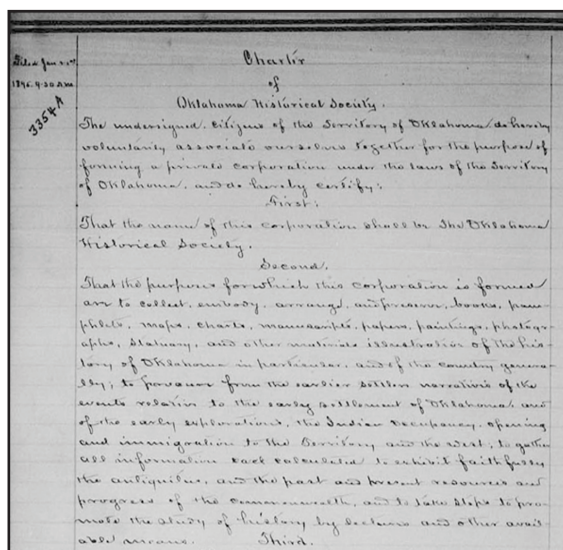 Charter
of
Oklahoma Historical Society.
Filed Jan
1895. 9:30 A.M.
3354 A
The undersigned, citizens of the Territory of Oklahoma do hereby
voluntarily associate ourselves together for the purpose of
forming a private corporation under the laws of the Territory
of Oklahoma, and do hereby certify:
First:
That the name of this corporation shall be The Oklahoma
Historical Society.
Second.
That the purposes for which this corporation is formed
are to collect, embody, arrange, and preserve, books, pam-
phlets, maps, charts, manuscripts, papers, paintings, photogr-
aphs, statuary, and other materials illustrative of the his-
tory of Oklahoma in particular, and of the country genera-
lly; to from the earlier settlers narratives of the
events relative to the early settlement of Oklahoma, and
of the early explorations, the Indian occupancy, opening
and immigration to the Territory and the west, to gather
all information calculated to exhibit faithfully
the antiquities, and the past and present resources and
progress of the commonwealth, and to take steps to pro-
mote the study of history by lectures and other avail-
able means.
Third.